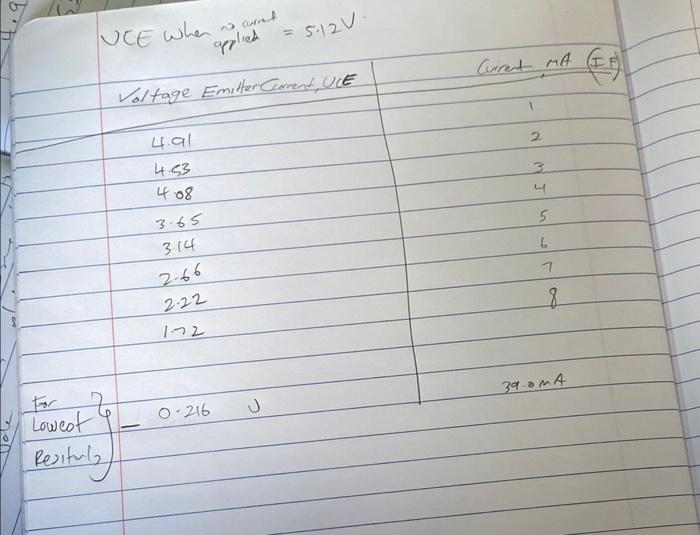 UCE When no current applied = 5.12V.
Voltage Emitter Current, UCE Current, mA (IF)
4.91 1
4.53 2
4.08 3
3.65 4
3.14 5
2.66 6
2.22 7
1.72 8
For Lowest – 0.216 V 39.0mA